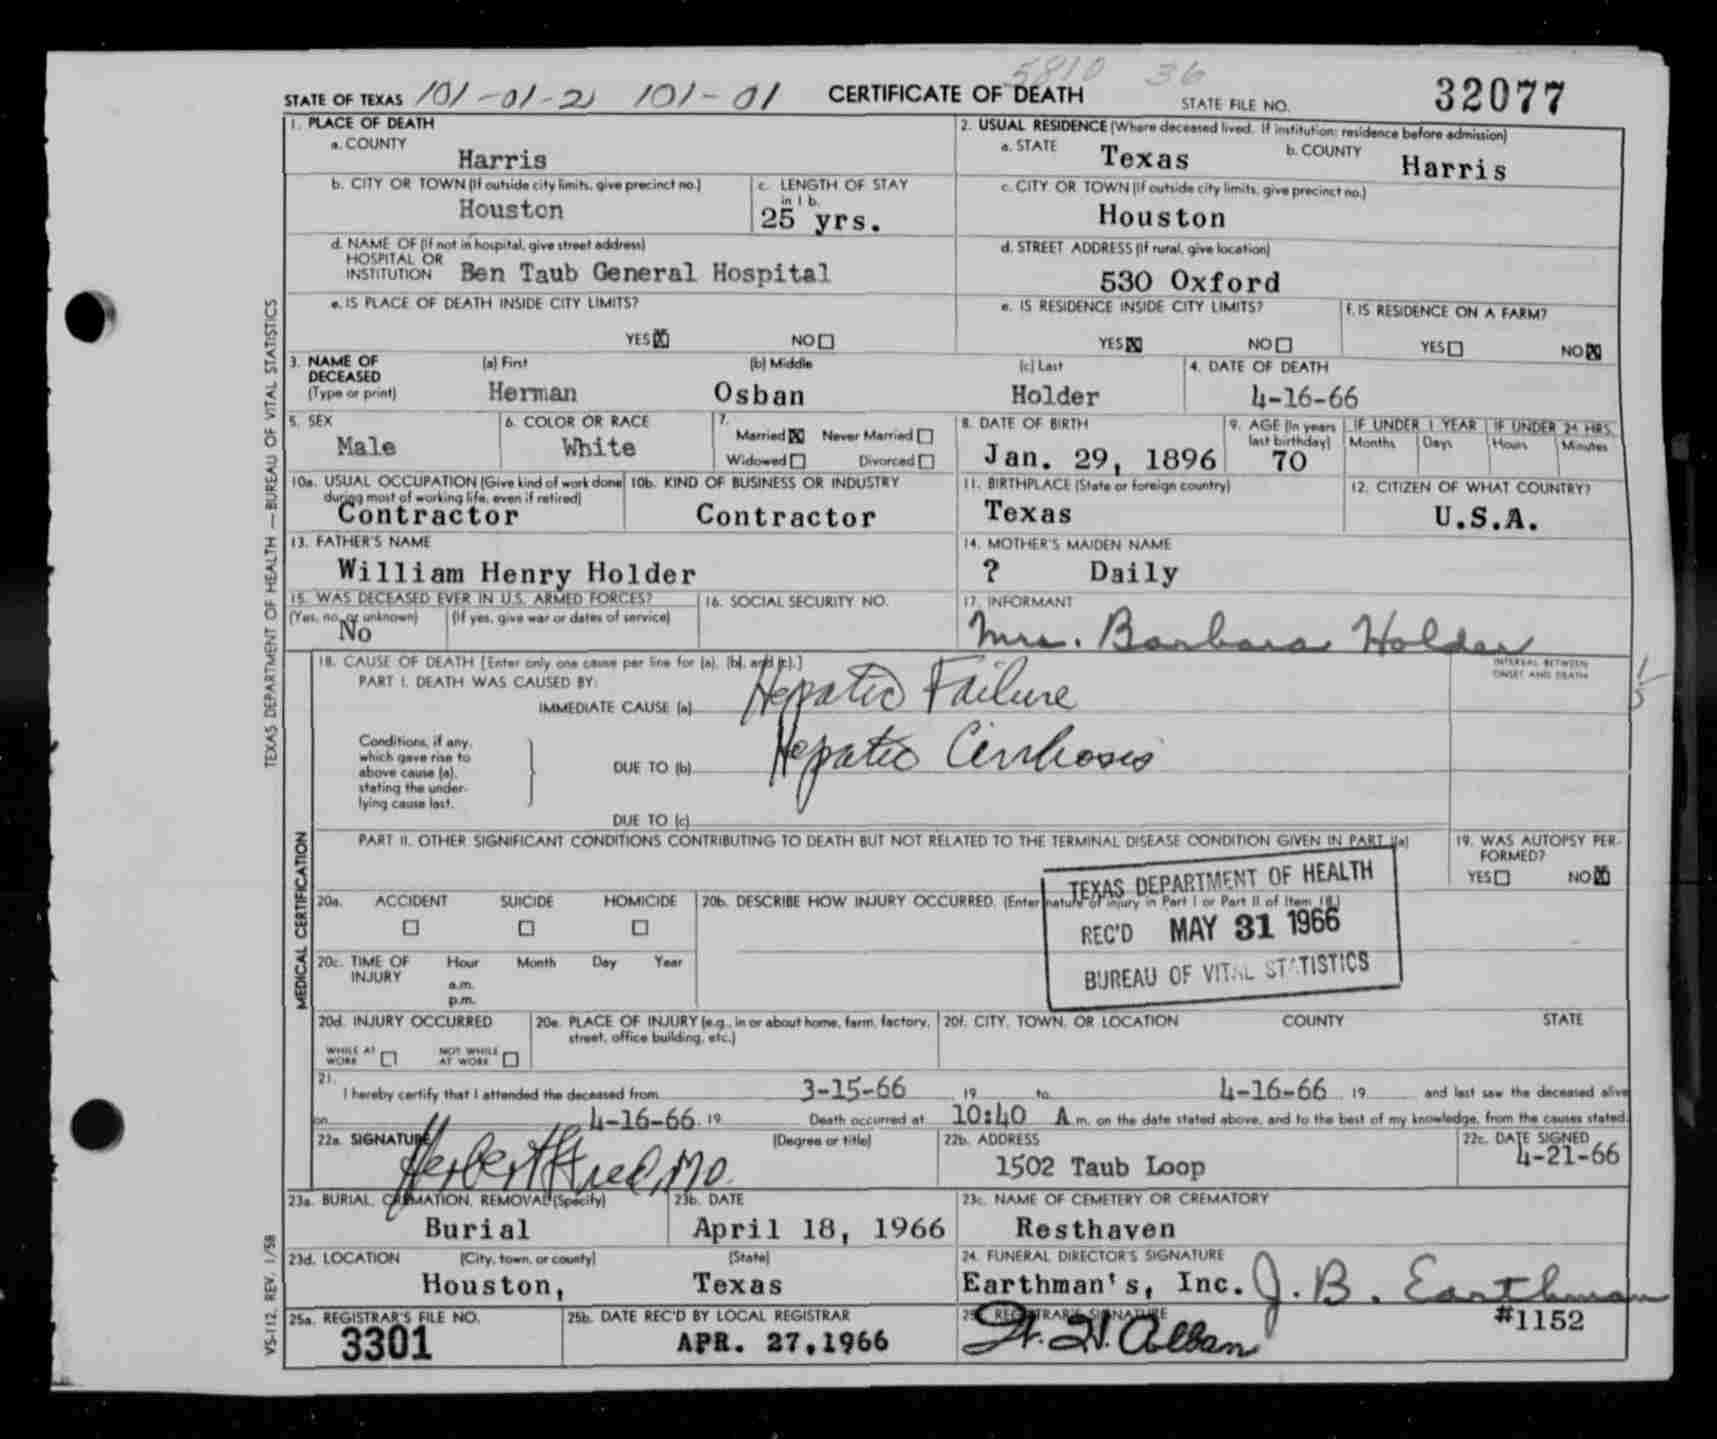 5810 36
STATE OF TEXAS 101-01-2 101-01 CERTIFICATE OF DEATH STATE FILE NO. 32077
1. PLACE OF DEATH
a. COUNTY
Harris
2. USUAL RESIDENCE (Where deceased lived. If institution: residence before admission)
a. STATE Texas b. COUNTY Harris
b. CITY OR TOWN (If outside city limits, give precinct no.)
Houston
c. LENGTH OF STAY
in 1 b.
25 yrs.
c. CITY OR TOWN (If outside city limits, give precinct no.)
Houston
d. NAME OF (If not in hospital, give street address)
HOSPITAL OR
INSTITUTION Ben Taub General Hospital
d. STREET ADDRESS (If rural, give location)
530 Oxford
e. IS PLACE OF DEATH INSIDE CITY LIMITS?
YES☒ NO☐
e. IS RESIDENCE INSIDE CITY LIMITS?
YES☒ NO☐
f. IS RESIDENCE ON A FARM?
YES☐ NO☒
3. NAME OF
DECEASED
(Type or print)
(a) First
Herman
(b) Middle
Osban
(c) Last
Holder
4. DATE OF DEATH
4-16-66
5. SEX
Male
6. COLOR OR RACE
White
7.
Married☒ Never Married☐
Widowed☐ Divorced☐
8. DATE OF BIRTH
Jan. 29, 1896
9. AGE (In years
last birthday)
70
IF UNDER 1 YEAR
Months Days
IF UNDER 24 HRS.
Hours Minutes
10a. USUAL OCCUPATION (Give kind of work done
during most of working life, even if retired)
Contractor
10b. KIND OF BUSINESS OR INDUSTRY
Contractor
11. BIRTHPLACE (State or foreign country)
Texas
12. CITIZEN OF WHAT COUNTRY?
U.S.A.
13. FATHER'S NAME
William Henry Holder
14. MOTHER'S MAIDEN NAME
? Daily
15. WAS DECEASED EVER IN U.S. ARMED FORCES?
(Yes, no, or unknown) (If yes, give war or dates of service)
No
16. SOCIAL SECURITY NO.
17. INFORMANT
Mrs. Barbara Holder
18. CAUSE OF DEATH [Enter only one cause per line for (a), (b), and (c).]
PART I. DEATH WAS CAUSED BY:
IMMEDIATE CAUSE (a) Hepatic Failure
INTERVAL BETWEEN
ONSET AND DEATH
Conditions, if any,
which gave rise to
above cause (a),
stating the under-
lying cause last.
DUE TO (b) Hepatic Cirrhosis
DUE TO (c)
PART II. OTHER SIGNIFICANT CONDITIONS CONTRIBUTING TO DEATH BUT NOT RELATED TO THE TERMINAL DISEASE CONDITION GIVEN IN PART I(a)
19. WAS AUTOPSY PER-
FORMED?
YES☐ NO☒
20a. ACCIDENT SUICIDE HOMICIDE
☐ ☐ ☐
20b. DESCRIBE HOW INJURY OCCURRED. (Enter nature of injury in Part I or Part II of Item 18.)
TEXAS DEPARTMENT OF HEALTH
REC'D MAY 31 1966
BUREAU OF VITAL STATISTICS
20c. TIME OF
INJURY
Hour Month Day Year
a.m.
p.m.
20d. INJURY OCCURRED
WHILE AT
WORK ☐
NOT WHILE
AT WORK ☐
20e. PLACE OF INJURY (e.g., in or about home, farm, factory,
street, office building, etc.)
20f. CITY, TOWN, OR LOCATION COUNTY STATE
21.
I hereby certify that I attended the deceased from 3-15-66 19 to 4-16-66 19 and last saw the deceased alive
on 4-16-66 19 Death occurred at 10:40 A.m. on the date stated above, and to the best of my knowledge, from the causes stated.
22a. SIGNATURE (Degree or title)
Herbert Fred, MD.
22b. ADDRESS
1502 Taub Loop
22c. DATE SIGNED
4-21-66
23a. BURIAL, CREMATION, REMOVAL (Specify)
Burial
23b. DATE
April 18, 1966
23c. NAME OF CEMETERY OR CREMATORY
Resthaven
23d. LOCATION (City, town, or county) (State)
Houston, Texas
24. FUNERAL DIRECTOR'S SIGNATURE
Earthman's, Inc. J. B. Earthman
#1152
25a. REGISTRAR'S FILE NO.
3301
25b. DATE REC'D BY LOCAL REGISTRAR
APR. 27, 1966
25c. REGISTRAR'S SIGNATURE
TEXAS DEPARTMENT OF HEALTH — BUREAU OF VITAL STATISTICS
MEDICAL CERTIFICATION
VS-112, REV. 1/58